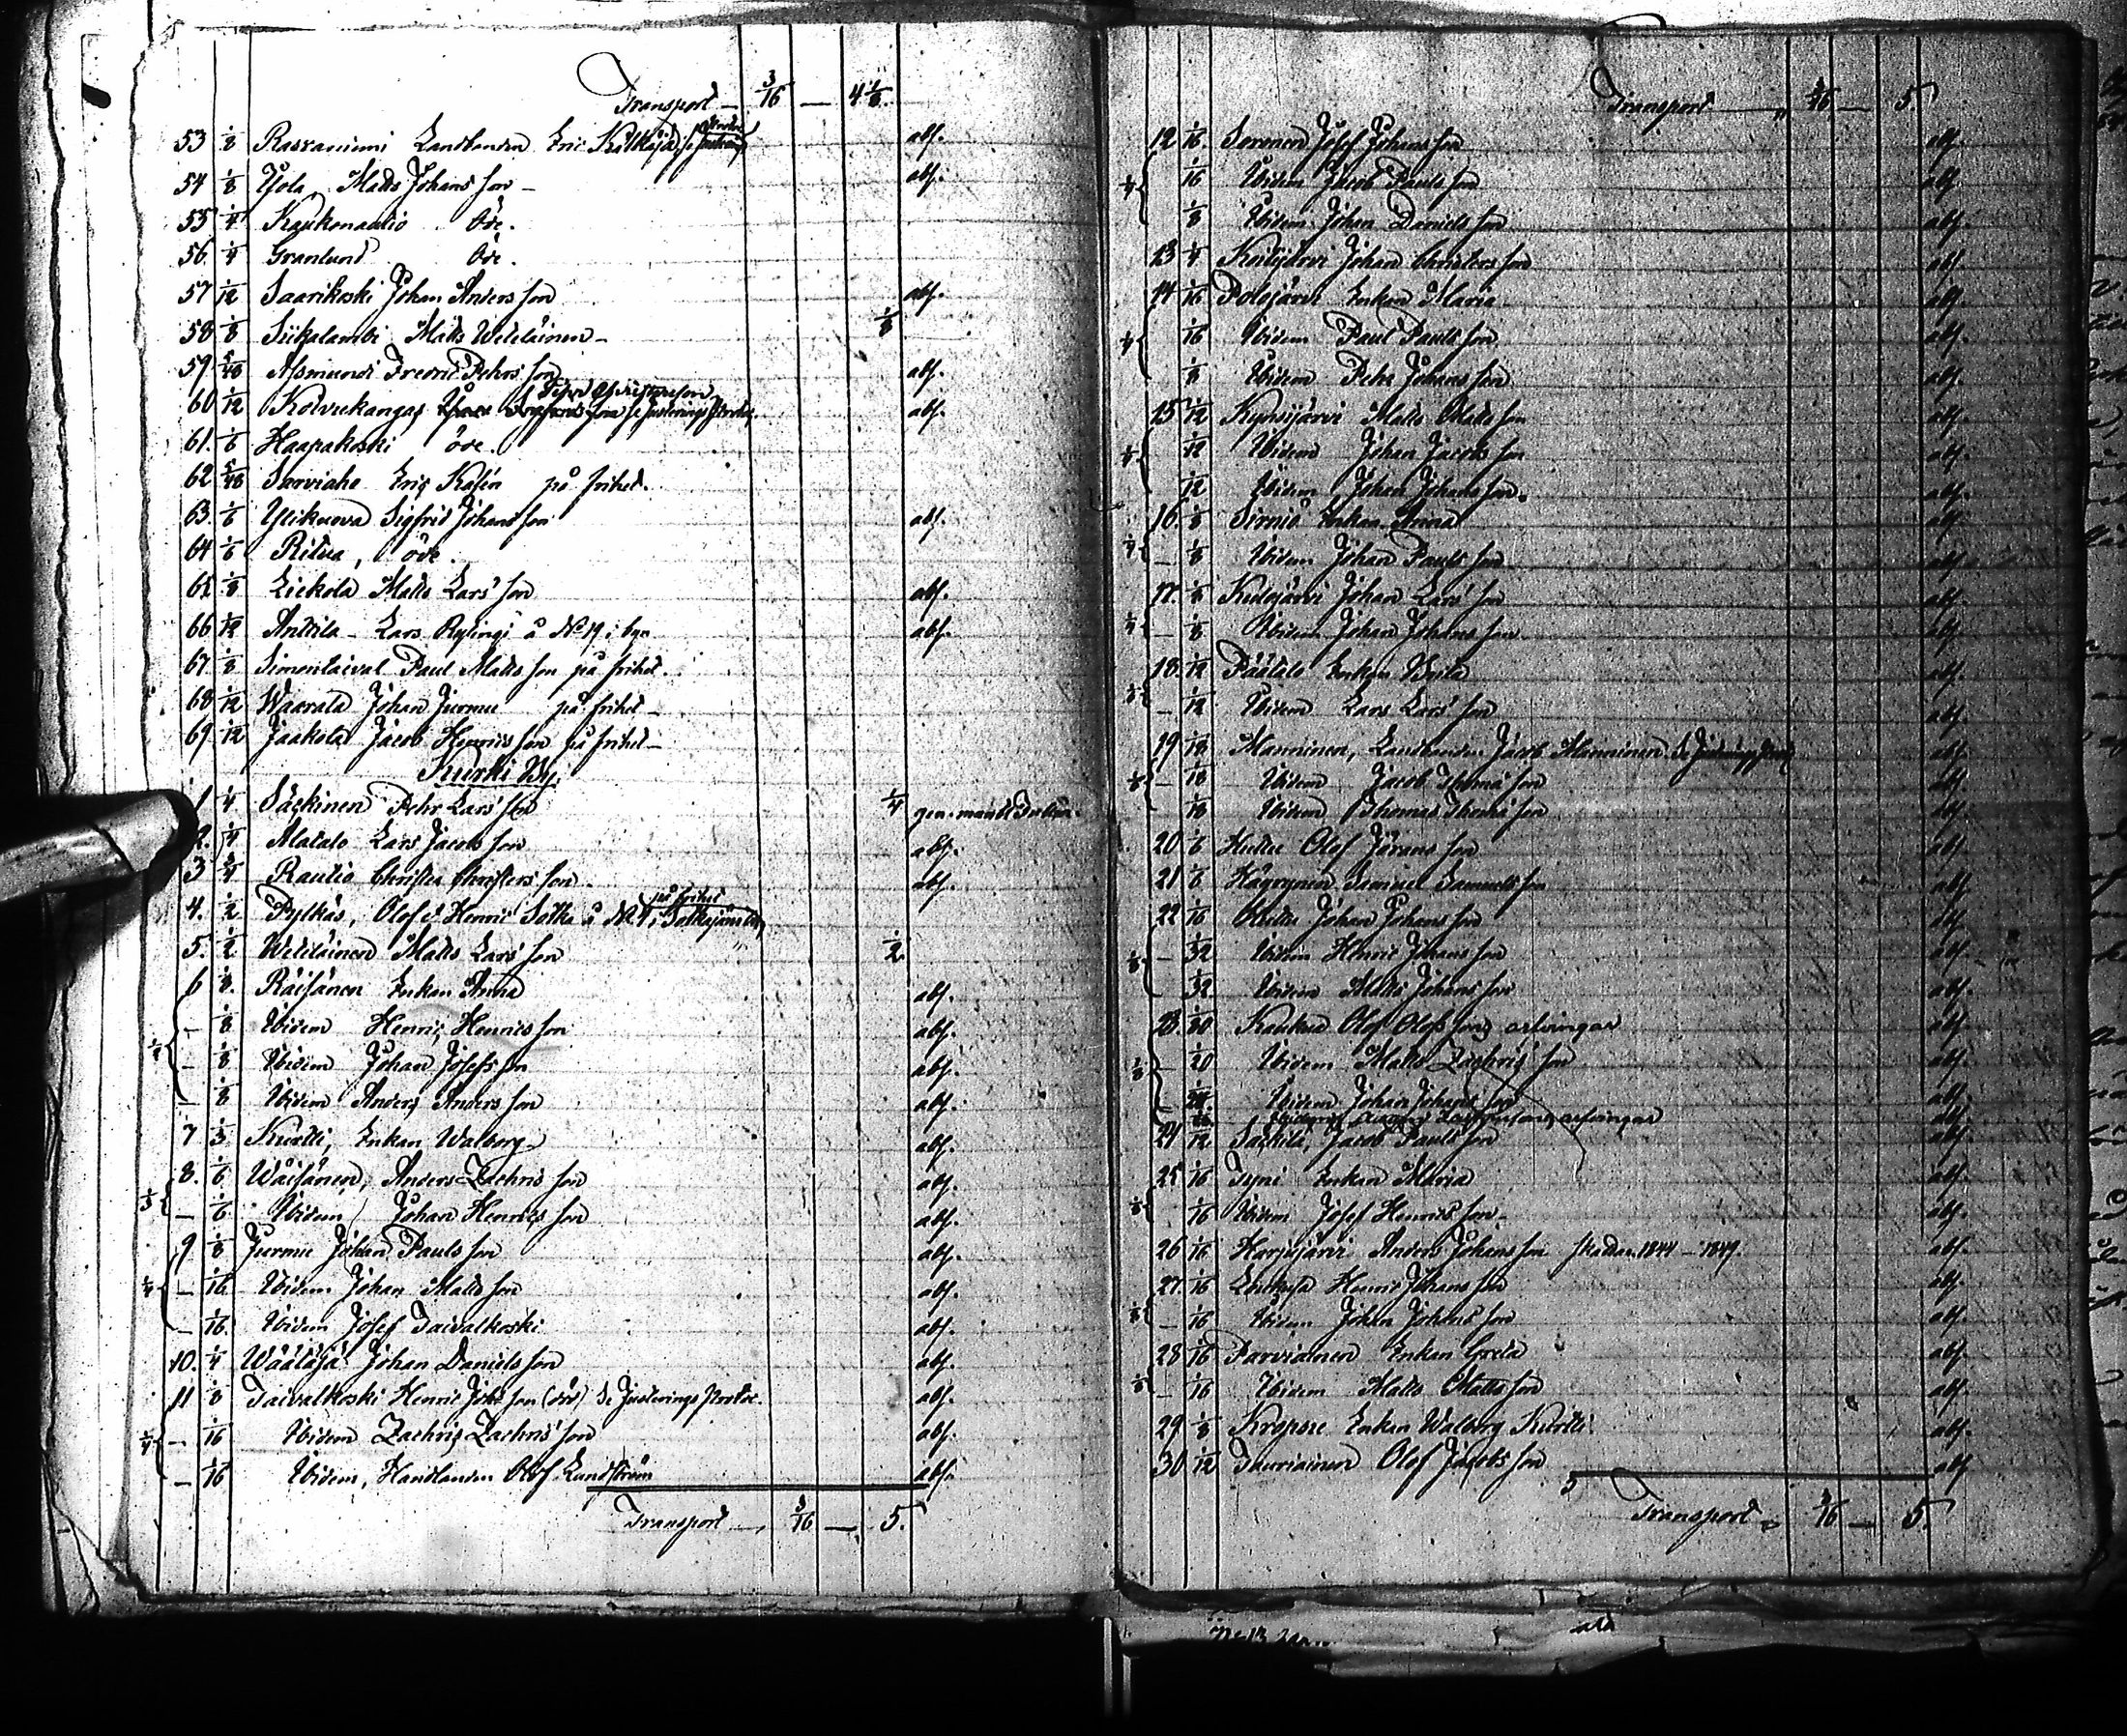 Transport — 3/16 — 4 1/8.
53 1/8 Landbonden Eric abs.
54 1/8 Yola Matts Johans son — abs.
55 1/4 Kaukonautio Öde.
56 1/4 Granlund Öde.
57 1/12 Saarikoski Johan Anders son abs.
58 1/8 Siikalambi Matts Weteläinen — 1/8
59 5/48 Asmundi Fredric Pehrs son abs.
60 1/12 Koivukangas abs.
61. 1/6 Haapakoski öde.
62 5/48 Sarviaho Eric på frihet.
63. 1/6 Ylikuova Sigfrid Johans son abs.
64 1/6 Ritva, öde.
65 1/8 Lickola Matts Lars' son abs.
66 1/12 Anttila — Lars å No 19 i byn abs.
67 1/8 Simontaival Paul Matts son på frihet.
68 1/12 Waarala Johan Jurmu på frihet —
69 1/12 Jaakola Jacob Henrics son på frihet —
Kurki By.
1 1/4 Säckinen Pehr Lars' son 1/4
2. 1/4 Matalo Lars Jacobs son abs.
3 3/4 Rautio Christer Christers son. abs.
på frihet
4. 1/2 Pylkäs, Olof & Henric Sotka å No 4 i
5. 1/2 Weteläinen Matts Lars' son 1/2.
6 1/8. Räisänen Enkan Anna abs.
1/2 { — 1/8 Ibidem Henric Henrics son abs.
— 1/8 Ibidem Johan Josefs son abs.
— 1/8 Ibidem Anders Anders son abs.
7 1/3 Kurtti, Enkan Walborg abs.
8. 1/6 Wäisänen, Anders Zachris son abs.
1/3 { — 1/6 Ibidem Johan Henrics son abs.
9 1/8 Jurmu Johan Pauls son abs.
1/4 — 1/16 Ibidem Johan Matts son abs.
— 1/16. Ibidem Josef Taivalkoski abs.
10. 1/4 Wäätäjä Johan Daniels son abs.
11 1/8 Taivalkoski Henric Johs son (död) Se Justerings Protoc. abs.
1/4 { — 1/16 Ibidem Zachris Zachris' son abs.
— 1/16 Ibidem, Handlanden Olof Lundström abs.
Transport — 3/16 — 5.
Transport " 3/16 — 5
12 1/16. Soronen Josef Johans son abs.
1/4 { 1/16 Ibidem Jacob Pauls son abs.
1/8 Ibidem Johan Daniels son abs.
13 1/4 Johan Christers son abs.
14 1/16 Polojärvi Enkan Maria abs.
1/4 { 1/16 Ibidem Paul Pauls son abs.
1/8 Ibidem Pehr Johans son abs.
15 1/12 Kynsijärvi Matts Matts son abs.
1/4 { 1/12 Ibidem Johan Jacobs son abs.
1/12 Ibidem Johan Johans son. abs.
16. 1/8 Sirniö Enkan Anna abs.
1/4 { — 1/8 Ibidem Johan Pauls son abs.
17. 1/8 Johan Lars' son abs.
1/4 { — 1/8 Ibidem Johan Johans son abs.
18. 1/12 Päätalo Enkan abs.
— 1/12 Ibidem Lars Lars' son abs.
19 1/18 Manninen, Landbonden Jacob Manninen abs.
— 1/18 Ibidem Jacob Thoma' son abs.
1/18 Ibidem Thomas Thoma' son abs.
20 1/6 Huttu Olof Jörans son abs.
21 1/6 Samuel Samuels son abs.
22 1/16 Huttu Johan Johans son abs.
1/8 — 1/32 Ibidem Henric Johans son abs.
1/32 Ibidem Matts Johans son abs.
23. Olof Olofs sons arfvingar abs.
1/8 — 1/20 Ibidem Matts Zachris' son abs.
— Ibidem Johan Johans son abs.
arfvingar abs.
24 1/12 Säckilä, Jacob Pauls son abs.
25 1/16 Tyni Enkan Maria abs.
1/8 { 1/16 Ibidem Josef Henrics son — abs.
26 1/16 Harjujärvi Anders Johans son 1844 — 1849. abs.
27. 1/16 Henric Johans son abs.
1/8 { — 1/16 Ibidem Johan Johans son abs.
28 1/16 Parviainen Enkan Greta abs.
1/8 { 1/16 Ibidem Matts Matts son abs.
29 1/8 Enkan Walborg Kurtti. abs.
30 1/12 Tauriainen Olof Jacobs son abs.
Transport — 3/16 — 5.